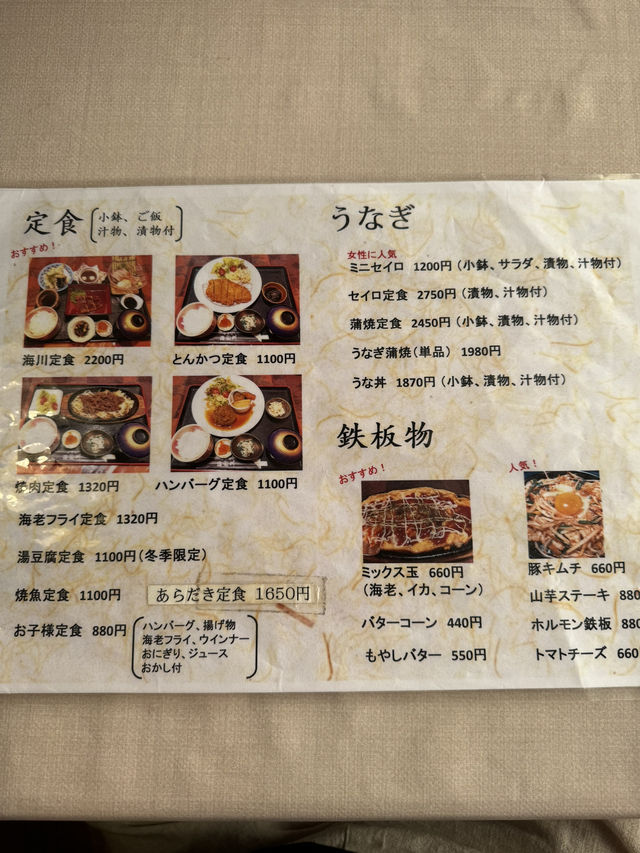 定食
小鉢、ご飯
汁物、漬物付
おすすめ!
海川定食 2200円
とんかつ定食 1100円
焼肉定食 1320円
ハンバーグ定食 1100円
海老フライ定食 1320円
湯豆腐定食 1100円(冬季限定)
焼魚定食 1100円
あらだき定食 1650円
お子様定食 880円
ハンバーグ、揚げ物
海老フライ、ウインナー
おにぎり、ジュース
おかし付
うなぎ
女性に人気
ミニセイロ 1200円(小鉢、サラダ、漬物、汁物付)
セイロ定食 2750円(漬物、汁物付)
蒲焼定食 2450円(小鉢、漬物、汁物付)
うなぎ蒲焼(単品) 1980円
うな丼 1870円(小鉢、漬物、汁物付)
鉄板物
おすすめ!
ミックス玉 660円
(海老、イカ、コーン)
バターコーン 440円
もやしバター 550円
人気!
豚キムチ 660円
山芋ステーキ 880
ホルモン鉄板 880
トマトチーズ 660